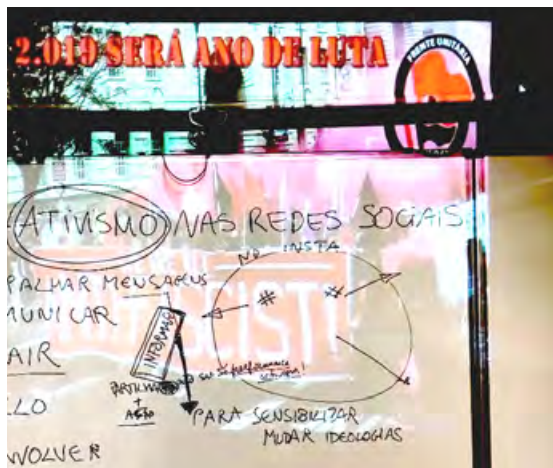 2.019 SERÁ ANO DE LUTA
FRENTE UNITÁRIA
ATIVISMO NAS REDES SOCIAIS
NO INSTA
PALHAR MENSAGENS
# #
MUNICAR
INFORMAÇ
AIR
+
AÇÃO
LO
PARA SENSIBILIZAR
MUDAR IDEOLOGIAS
NVOLVER